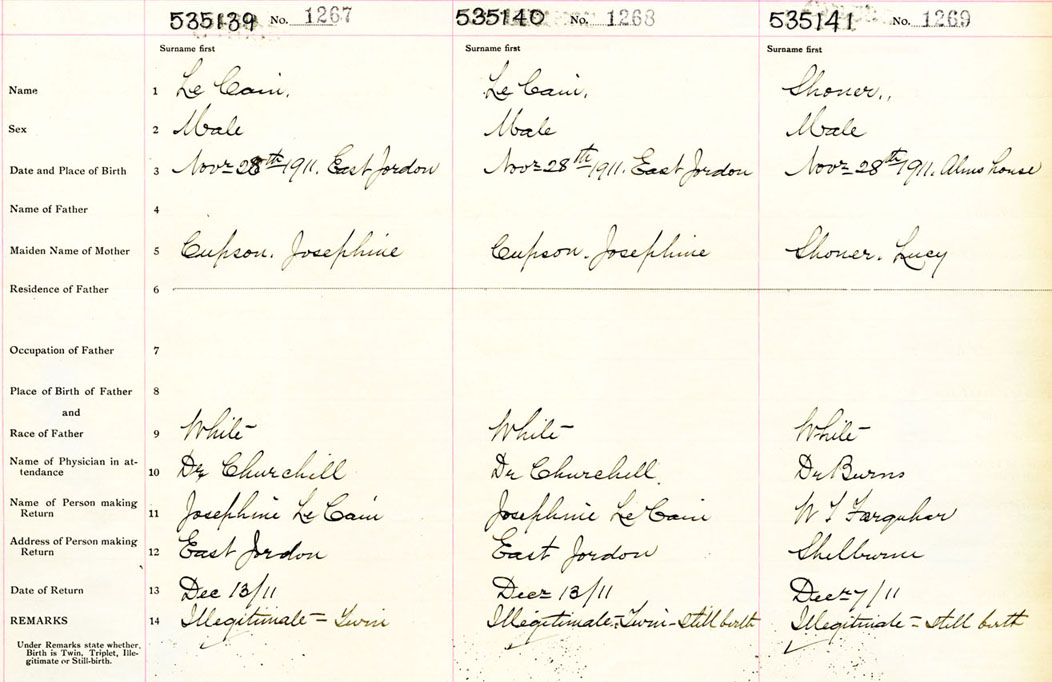 535139 No. 1267 535140 No. 1268 535141 No. 1269
Surname first Surname first Surname first
Name 1 Le Cain. Le Cain. Shoner..
Sex 2 Male Male Male
Date and Place of Birth 3 Novr 28th 1911. East Jordon Novr 28th 1911. East Jordon Novr 28th 1911. Alms house
Name of Father 4
Maiden Name of Mother 5 Cupson. Josephine Cupson. Josephine Shoner. Lucy
Residence of Father 6
Occupation of Father 7
Place of Birth of Father 8
and
Race of Father 9 White White White
Name of Physician in at-
tendance 10 Dr Churchill Dr Churchill. Dr Burns
Name of Person making
Return 11 Josephine Le Cain Josephine Le Cain W T Farquhar
Address of Person making
Return 12 East Jordon East Jordon Shelburne
Date of Return 13 Dec 13/11 Decr 13/11 Decr 7/11
REMARKS 14 Illegitimate = Twin Illegitimate = Twin - Still birth Illegitimate = Still birth
Under Remarks state whether,
Birth is Twin, Triplet, Ille-
gitimate or Still-birth.